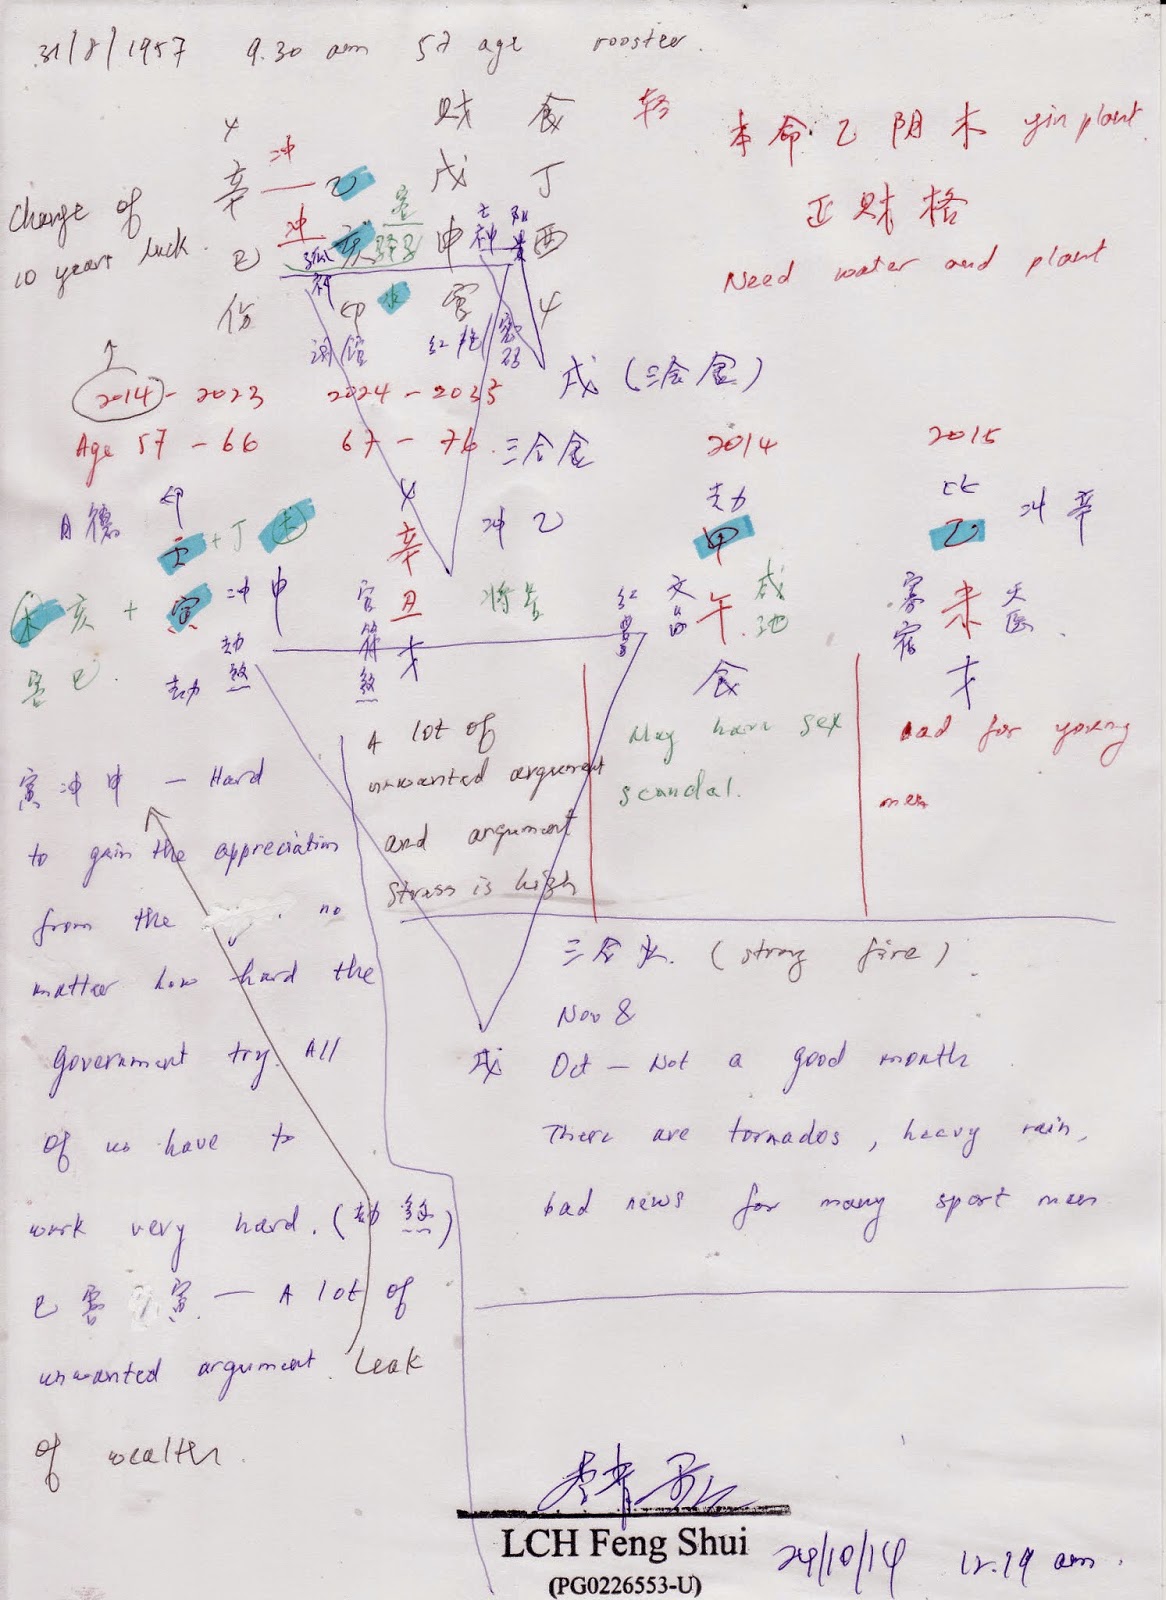 31/8/1957 9.30 am 57 age rooster.
财 食 轻
本命乙阴木 yin plant
辛 冲 乙 戊 丁
正财格
Change of
10 years luck.
巳 冲 亥 害 申 亡神 酉
孤神 驿马
Need water and plant
份 印 水 官
红艳
戌 (三合金)
2014 - 2023 2024 - 2033
Age 57 - 66 67 - 76 三合金 2014 2015
月德 印 冲乙 劫 比 冲辛
壬 + 丁 木 辛 甲 乙
木 亥 + 寅 冲 申 官符煞 丑 将星 文昌 午 咸池 寡宿 未 天医
害巳. 劫 劫煞 才 食 才
A lot of
unwanted argument
and argument
Stress is high
May have sex
scandal.
bad for young
men
寅冲申 — Hard
to gain the appreciation
from the no
matter how hard the
government try. All
of us have to
work very hard. (劫煞)
巳害寅 — A lot of
unwanted argument. Leak
of wealth.
三合火. (strong fire)
Nov &
戌 Oct — Not a good month
There are tornados, heavy rain,
bad news for many sport men
LCH Feng Shui
(PG0226553-U)
29/10/14 12.19 am.